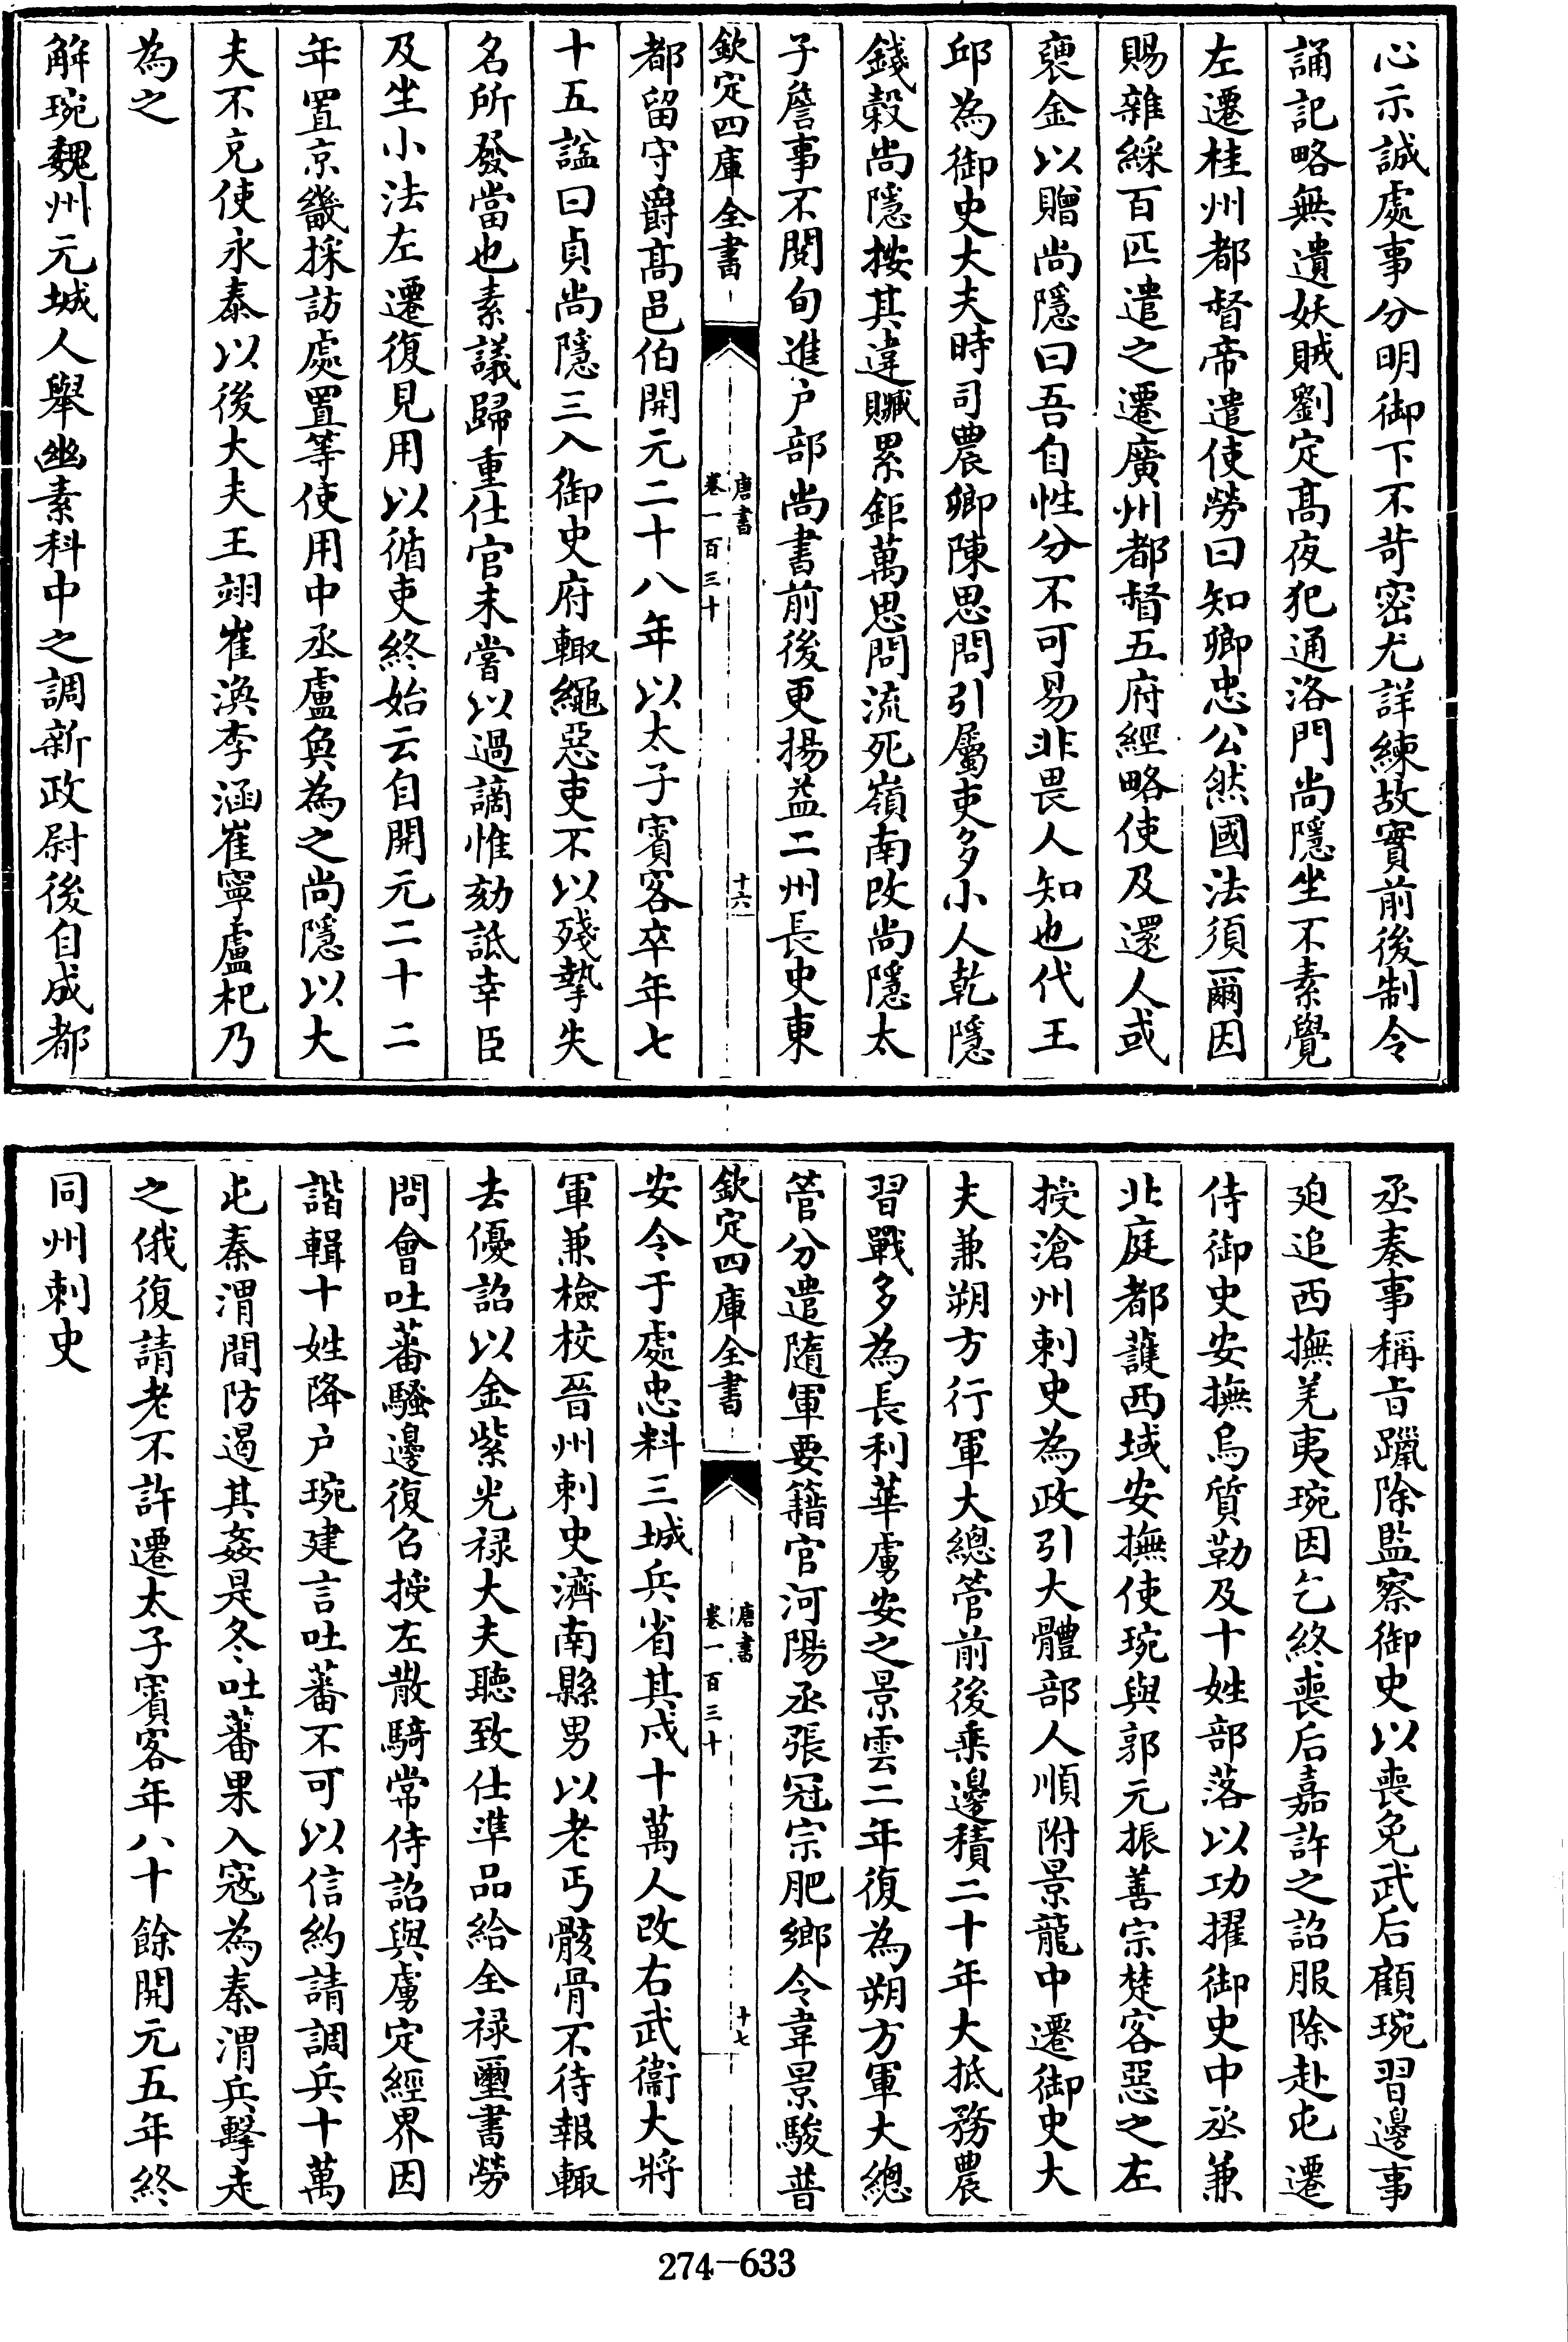 心示誠處事分明御下不苛密尤詳練故實前後制令
誦記略無遺妖賊劉定髙夜犯通洛門尚隱坐不素覺
左遷桂州都督帝遣使勞曰知卿忠公然國法須爾因
賜雜綵百匹遣之遷廣州都督五府經略使及還人或
褏金以贈尚隱曰吾自性分不可易非畏人知也代王
邱為御史大夫時司農卿陳思問引屬吏多小人乾隱
錢榖尚隱按其違贓累鉅萬思問流死嶺南改尚隱太
子詹事不閱旬進户部尚書前後更揚益二州長史東
欽定四庫全書
唐書
卷一百三十
十六
都留守爵髙邑伯開元二十八年以太子賓客卒年七
十五諡曰貞尚隱三入御史府輙繩惡吏不以殘摯失
名所發當也素議歸重仕官未嘗以過謫惟劾詆幸臣
及坐小法左遷復見用以循吏終始云自開元二十二
年置京畿採訪處置等使用中丞盧奐為之尚隱以大
夫不充使永泰以後大夫王翊崔渙李涵崔寧盧杞乃
為之
解琬魏州元城人舉幽素科中之調新政尉後自成都
丞奏事稱旨躐除監察御史以喪免武后顧琬習邊事
廹追西撫羌夷琬因乞終喪后嘉許之詔服除赴屯遷
侍御史安撫烏質勒及十姓部落以功擢御史中丞兼
北庭都護西域安撫使琬與郭元振善宗楚客惡之左
授滄州刺史為政引大體部人順附景龍中遷御史大
夫兼朔方行軍大總管前後乗邊積二十年大抵務農
習戰多為長利華虜安之景雲二年復為朔方軍大總
管分遣隨軍要籍官河陽丞張冠宗肥鄉令韋景駿普
欽定四庫全書
唐書
卷一百三十
十七
安令于處忠料三城兵省其戍十萬人改右武衞大將
軍兼檢校晉州刺史濟南縣男以老丐骸骨不待報輙
去優詔以金紫光禄大夫聽致仕準品給全禄璽書勞
問會吐蕃騷邊復召授左散騎常侍詔與虜定經界因
諧輯十姓降户琬建言吐蕃不可以信約請調兵十萬
屯秦渭間防遏其姦是冬吐蕃果入寇為秦渭兵擊走
之俄復請老不許遷太子賓客年八十餘開元五年終
同州刺史
274-633